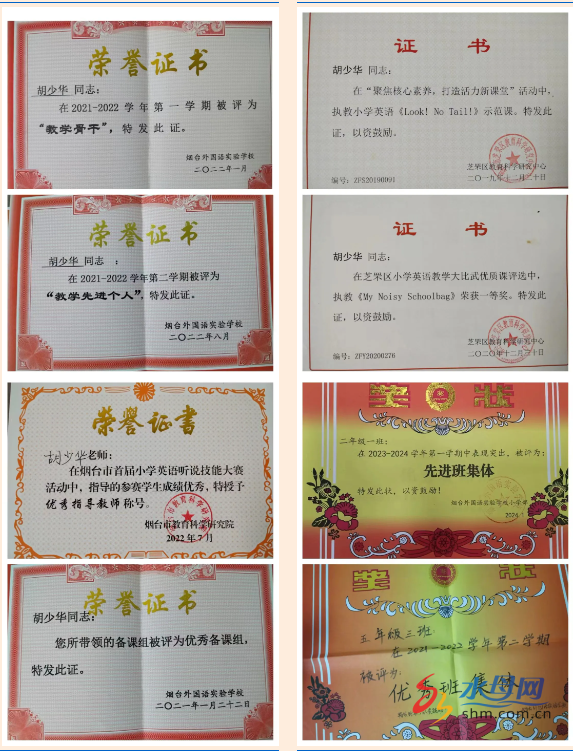 荣誉证书
胡少华 同志:
在2021-2022学年第一学期被评为
“教学骨干”,特发此证。
烟台外国语实验学校
二〇二二年一月
荣誉证书
胡少华 同志 :
在2021-2022学年第二学期被评为
“教学先进个人”,特发此证。
烟台外国语实验学校
二〇二二年八月
荣誉证书
胡少华老师:
在烟台市首届小学英语听说技能大赛
活动中,指导的参赛学生成绩优秀,特授予
优秀指导教师称号。
烟台市教育科学研究院
2022年7月
荣誉证书
胡少华同志:
您所带领的备课组被评为优秀备课组,
特发此证。
烟台外国语实验学校
二〇二一年一月二十二日
证 书
胡少华 同志:
在“聚焦核心素养,打造活力新课堂”活动中,
执教小学英语《Look! No Tail!》示范课。特发此
证,以资鼓励。
芝罘区教育科学研究中心
二〇一九年十二月二十日
编号:ZFS20190091
证 书
胡少华 同志:
在芝罘区小学英语教学大比武优质课评选中,
执教《My Noisy Schoolbag》荣获一等奖。特发此
证,以资鼓励。
芝罘区教育科学研究中心
二〇二〇年十二月三十日
编号:ZFS20200276
奖状
二年级一班:
在2023-2024学年第一学期中表现突出,被评为:
先进班集体
特发此状,以资鼓励!
烟台外国语实验学校小学部
2024.1
奖状
五年级三班
在2021-2022学年第二学期
被评为
优秀班集体
水母网
shm.com.cn